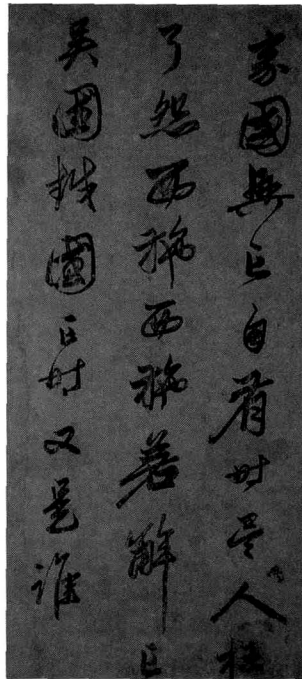 家國興亡自有時吳人枉
了怨西施西施若解亡
吳國越國亡時又是誰